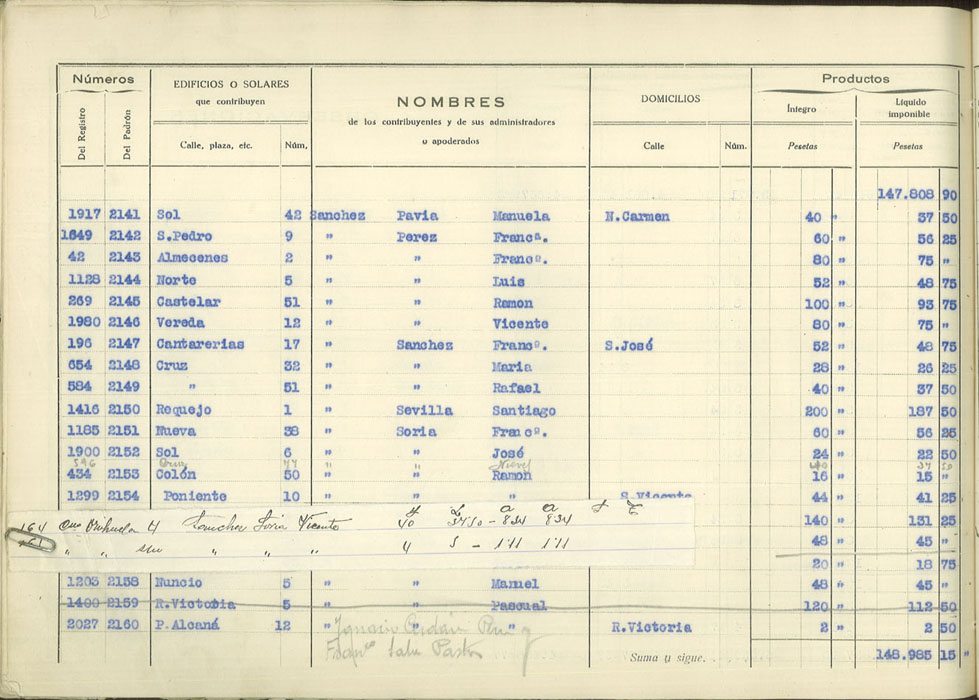 Números EDIFICIOS O SOLARES NOMBRES DOMICILIOS Productos
que contribuyen de los contribuyentes y de sus administradores Íntegro Líquido imponible
Del Registro Del Padrón Calle, plaza, etc. Núm. o apoderados Calle Núm. Pesetas Pesetas
147.808 90
1917 2141 Sol 42 Sanchez Pavia Manuela N.Carmen 40 " 37 50
1649 2142 S.Pedro 9 " Perez Francª. 60 " 56 25
42 2143 Almecenes 2 " " Francº. 80 " 75 "
1128 2144 Norte 5 " " Luis 52 " 48 75
269 2145 Castelar 51 " " Ramon 100 " 93 75
1980 2146 Vereda 12 " " Vicente 80 " 75 "
196 2147 Cantarerias 17 " Sanchez Francº. S.José 52 " 48 75
654 2148 Cruz 32 " " Maria 28 " 26 25
584 2149 " 51 " " Rafael 40 " 37 50
1416 2150 Requejo 1 " Sevilla Santiago 200 " 187 50
1185 2151 Nueva 38 " Soria Francº. 60 " 56 25
1900 2152 Sol 6 " " José 24 " 22 50
596 Cruz 47 " " 40 37 50
434 2153 Colón 50 " " Ramon 16 " 15 "
1299 2154 Poniente 10 " " " S.Vicente 44 " 41 25
164 Orihuela 4 Sanchez Soria Vicente 40 37 50 - 834 834
140 " 131 25
" " " " " 4 5 - 1'11 1'11
48 " 45 "
20 " 18 75
1203 2158 Nuncio 5 " " Manuel 48 " 45 "
1400 2159 R.Victoria 5 " " Pascual 120 " 112 50
2027 2160 P.Alcaná 12 " " " R.Victoria 2 " 2 50
Ignacio
Pastor
Suma y sigue. . . . 148.985 15 "